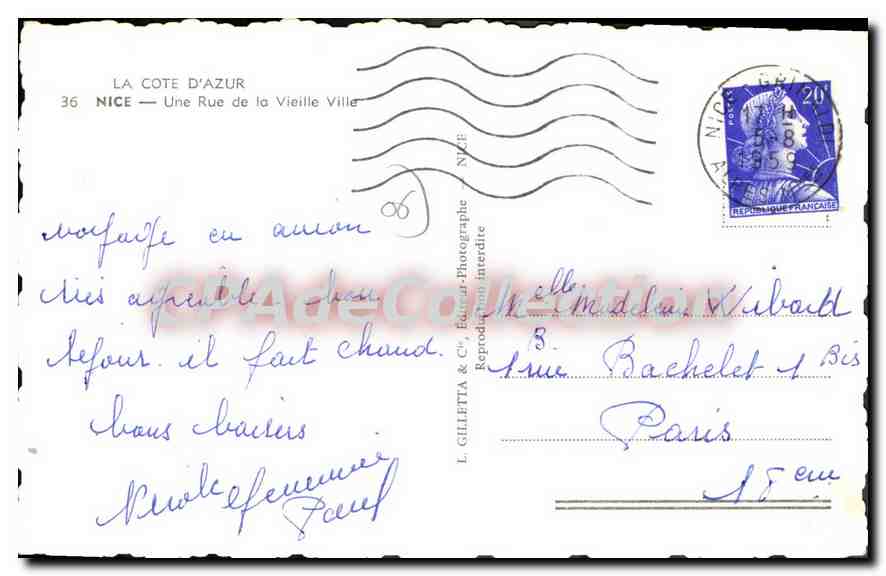 LA COTE D'AZUR
36 NICE — Une Rue de la Vieille Ville
06
voyage en avion
très agréable. bon
séjour. il fait chaud.
bons baisers
Nicole
Paul
L. GILLETTA & Cie, Éditeur-Photographe — NICE
Reproduction interdite
NICE GRIMALDI
17 H
5-8
1959
ALPES Mmes
20F
POSTES
REPUBLIQUE FRANÇAISE
Melle Madeleine
1 rue Bachelet 1 Bis
Paris
18em
CPAdeCollection